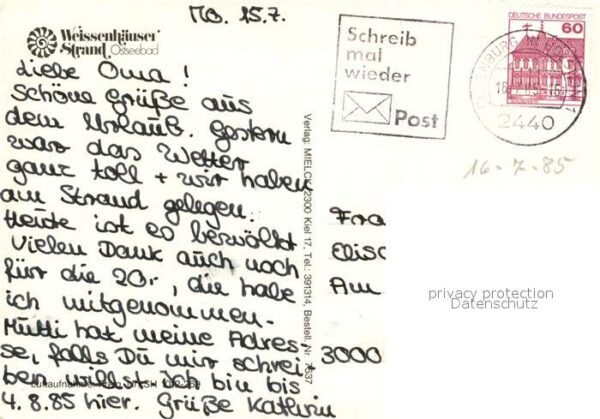 Mo. 15.7.
Weissenhäuser
Strand Ostseebad
Liebe Oma!
Schöne Grüße aus
dem Urlaub. Gestern
war das Wetter
ganz toll + wir haben
am Strand gelegen.
Heute ist es bewölkt
Vielen Dank auch noch
für die 20,-, die habe
ich mitgenommen.
Mutti hat meine Adres-
se, falls Du mir schrei-
ben willst. Ich bin bis
4.8.85 hier. Grüße Kathrin
Schreib
mal
wieder
Post
DEUTSCHE BUNDESPOST
60
2440
16-7-85
Verlag: MIELCK, 2300 Kiel 17, Tel.: 391314, Bestell. Nr. 7537
Fra
Elisa
Am
3000
privacy protection
Datenschutz